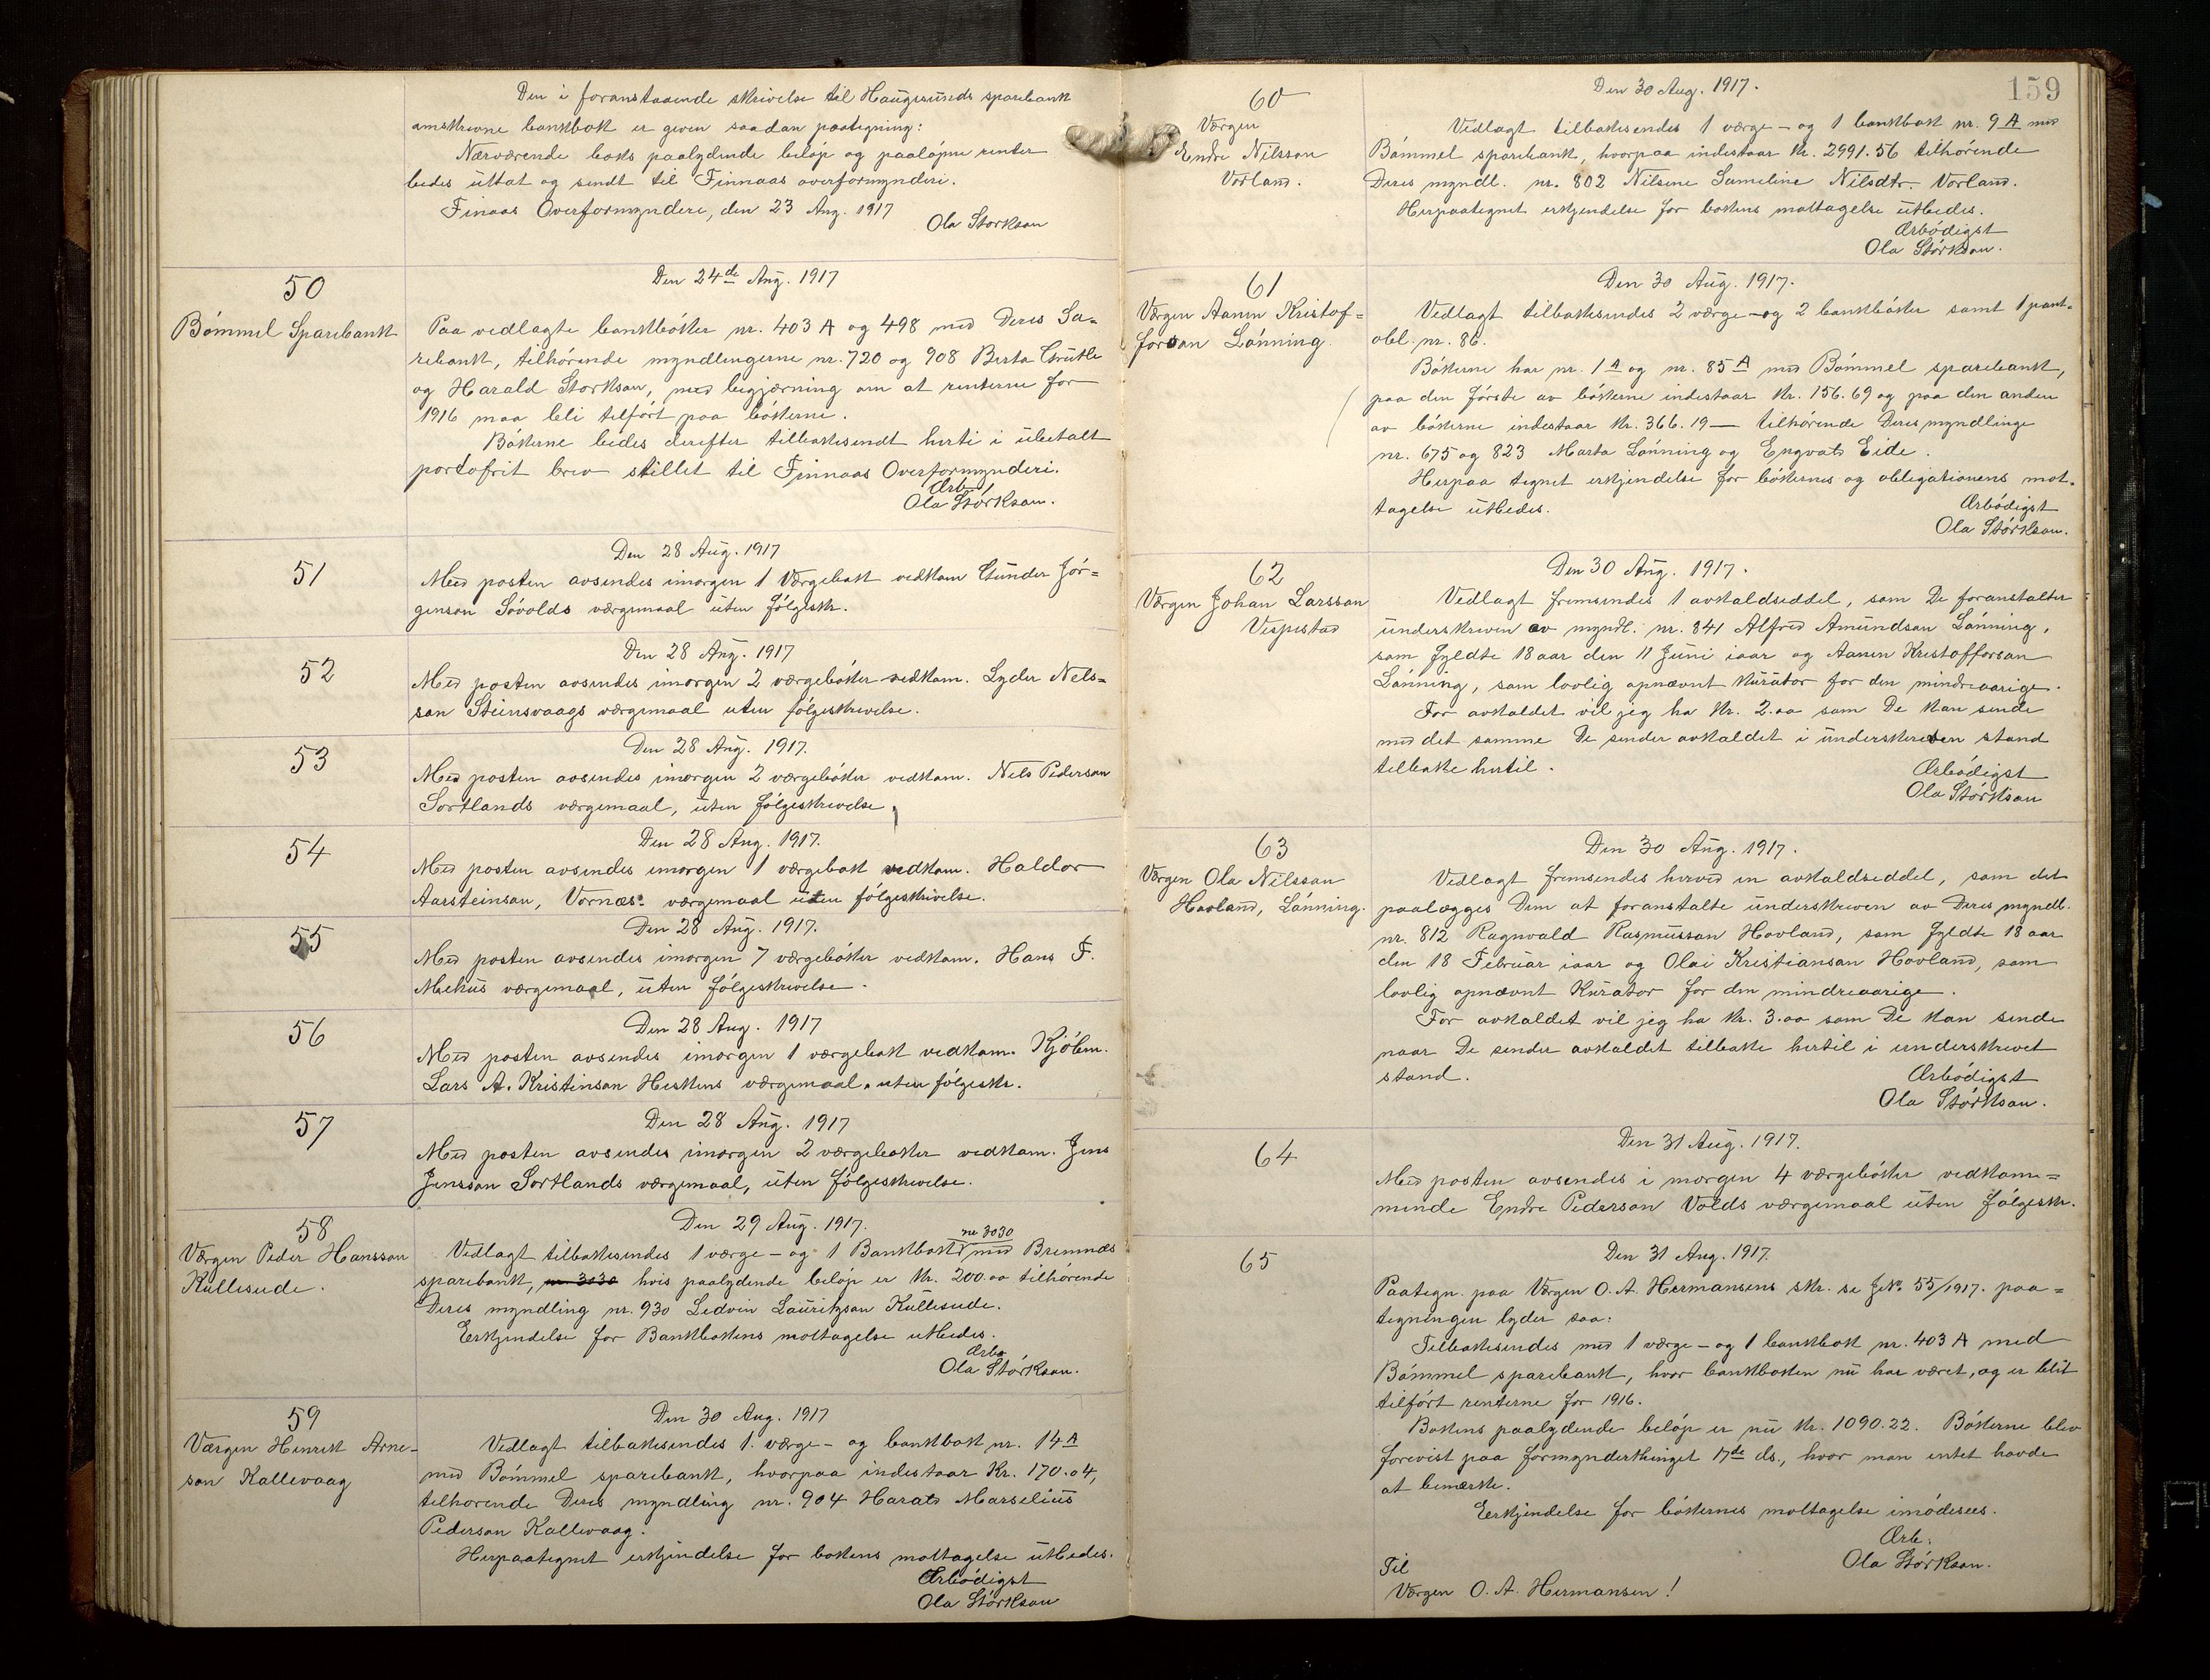 Den i foranstaaende skrivelse til Haugesunds sparebank
omskrevne bankbok er given saadan paategning:
Nærværende boks paalydende beløp og paaløpne renter
bedes uttat og sendt til Finnaas overformynderi.
Finaas Overformynderi, den 23 Aug. 1917
Ola Størkson
50
Bømmel Sparebank
Den 24de Aug. 1917
Paa vedlagte bankbøker nr. 403 A og 498 med Deres Sa=
rebank, tilhørende myndlingerne nr. 720 og 908 Berta Grutle
og Harald Storkson, med begjærning om at renterne for
1916 maa bli tilført paa bøkerne.
Bøkerne bedes derefter tilbakesendt herti i ubetalt
portofrit brev stillet til Finnaas Overformynderi.
Ærb.
Ola Størkson.
51
Den 28 Aug. 1917
Med posten avsendes imorgen 1 Værgebok vedkom Gunder Jør=
genson Søvolds værgemaal uten følgeskr.
52
Den 28 Aug. 1917
Med posten avsendes imorgen 2 værgebøker vedkom. Lyder Nels=
son Steinsvaags værgemaal uten følgeskrivelse.
53
Den 28 Aug. 1917.
Med posten avsendes imorgen 2 værgebøker vedkom. Nels Pederson
Sortlands værgemaal, uten følgeskrivelse
54
Den 28 Aug. 1917.
Med posten avsendes imorgen 1 værgebok vedkom. Haldor
Aarsteinson, Vornæs. værgemaal uten følgeskrivelse.
55
Den 28 Aug. 1917.
Med posten avsendes imorgen 7 værgebøker vedkom. Hans F.
Mehus værgemaal, uten følgeskrivelse.
56
Den 28 Aug. 1917
Med posten avsendes imorgen 1 værgebok vedkom. Kjøbm.
Lars A. Kristinson Heskens værgemaal. uten følgeskr.
57
Den 28 Aug. 1917
Med posten avsendes imorgen 2 værgebøker vedkom. Jens
Jensson Sortlands værgemaal, uten følgeskrivelse.
58
Værgen Peder Hansson
Kullesude.
Den 29 Aug. 1917.
nr 3030
Vedlagt tilbakesendes 1 værge - og 1 Bankbok med Bremnæs
sparebank, nr. 3030 hvis paalydende beløp er Kr. 200.00 tilhørende
Deres myndling nr. 930 Ledvin Lauritzson Kullesude.
Erkjendelse for Bankbokens mottagelse utbedes.
Ærb
Ola Størkson.
59
Værgen Henrik Arne-
son Kallevaag
Den 30 Aug. 1917
Vedlagt tilbakesendes 1. værge - og bankbok nr. 14 A
med Bømmel sparebank, hvorpaa indestaar Kr. 170.04,
tilhørende Deres myndling nr. 904 Harald Marselius
Pederson Kallevaag.
Herpaategnet erkjendelse for bokens mottagelse utbedes.
Ærbødigst
Ola Størkson
159
60
Værgen
Endre Nilsson
Vorland.
Den 30 Aug. 1917.
Vedlagt tilbakesendes 1 værge - og 1 bankbok nr. 9 A med
Bømmel sparebank, hvorpaa indestaar Kr. 2991.56 tilhørende
Deres myndl. nr. 802 Nilsine Sameline Nilsdtr. Vorland.
Herpaategnet erkjendelse for bokens mottagelse utbedes.
Ærbødigst
Ola Størkson.
61
Værgen Aanen Kristof=
forson Lønning.
Den 30 Aug. 1917.
Vedlagt tilbakesendes 2 værge - og 2 bankbøker samt 1 pant-
obl. nr. 86.
Bøkerne har nr. 1 A og nr. 85 A med Bømmel sparebank,
paa den første av bøkerne indestaar Kr. 156.69 og paa den anden
av bøkerne indestaar Kr. 366.19 — tilhørende Deres myndlinge
nr. 675 og 823 Marta Lønning og Engvald Eide.
Herpaa tegnet erkjendelse for bøkernes og obligationens mot-
tagelse utbedes.
Ærbødigst
Ola Størkson.
62
Værgen Johan Larsson
Vespestad
Den 30 Aug. 1917.
Vedlagt fremsendes 1 avkaldseddel, som De foranstalter
underskreven av myndl. nr. 841 Alfred Amundson Lønning,
som fyldte 18 aar den 11 Juni iaar og Aanen Kristofforson
Lønning, som lovlig opnævnt Kurator for den mindreaarige.
For avkaldet vil jeg ha Kr. 2.00 som De kan sende
med det samme De sender avkaldet i underskreven stand
tilbake hertil.
Ærbødigst
Ola Størkson
63
Værgen Ola Nilsson
Hovland, Lønning.
Den 30 Aug. 1917.
Vedlagt fremsendes herved en avkaldseddel, som det
paalægges Dem at foranstalte underskreven av Deres myndl.
nr. 812 Ragnvald Rasmusson Hovland, som fyldte 18 aar
den 18 Februar iaar og Olai Kristianson Hovland, som
lovlig opnævnt Kurator for den mindreaarige.
For avkaldet vil jeg ha Kr. 3.00 som De kan sende
naar De sender avkaldet tilbake hertil i underskrevet
stand.
Ærbødigst
Ola Størkson.
64
Den 31 Aug. 1917.
Med posten avsendes i morgen 4 værgebøker vedkom=
mende Endre Pederson Volds værgemaal uten følgeskr.
65
Den 31 Aug. 1917.
Paategn. paa Værgen O. A. Hermansens skr. se J.No. 55/1917. paa=
tegningen lyder saa:
Tilbakesendes med 1 værge - og 1 bankbok nr. 403 A med
Bømmel sparebank, hvor bankboken nu har været, og er blit
tilført renterne for 1916.
Bokens paalydende beløp er nu Kr. 1090.22. Bøkerne blev
forevist paa formynderthinget 17de ds., hvor man intet havde
at bemærke.
Erkjendelse for bøkernes mottagelse imødesees.
Ærb.
Ola Størkson.
Til
Værgen O. A. Hermansen!